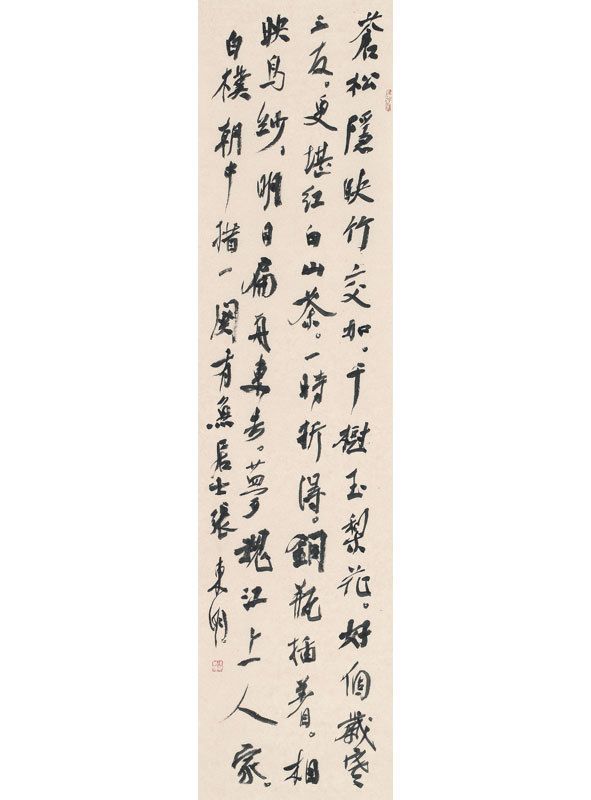 蒼松隱映竹交加。千樹玉梨花。好個歲寒
三友。更堪紅白山茶。一時折得。銅瓶插看。相
映烏紗。明日扁舟東去。夢魂江上人家。
白樸朝中措一闋有無居士張東明